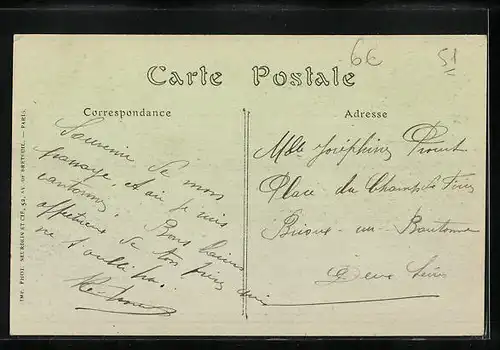 6€
51
Carte Postale
Correspondance
Adresse
Souvenir de mon
passage, où je suis
cantonné. Bons baisers
affectueux de ton frère qui
ne t'oublie pas.
Mlle Joséphine
Place du Champ de Foire
Brioux sur Boutonne
Deux Sèvres
IMP. PHOT. NEURDEIN ET CIE, 52, AV. DE BRETEUIL. — PARIS.